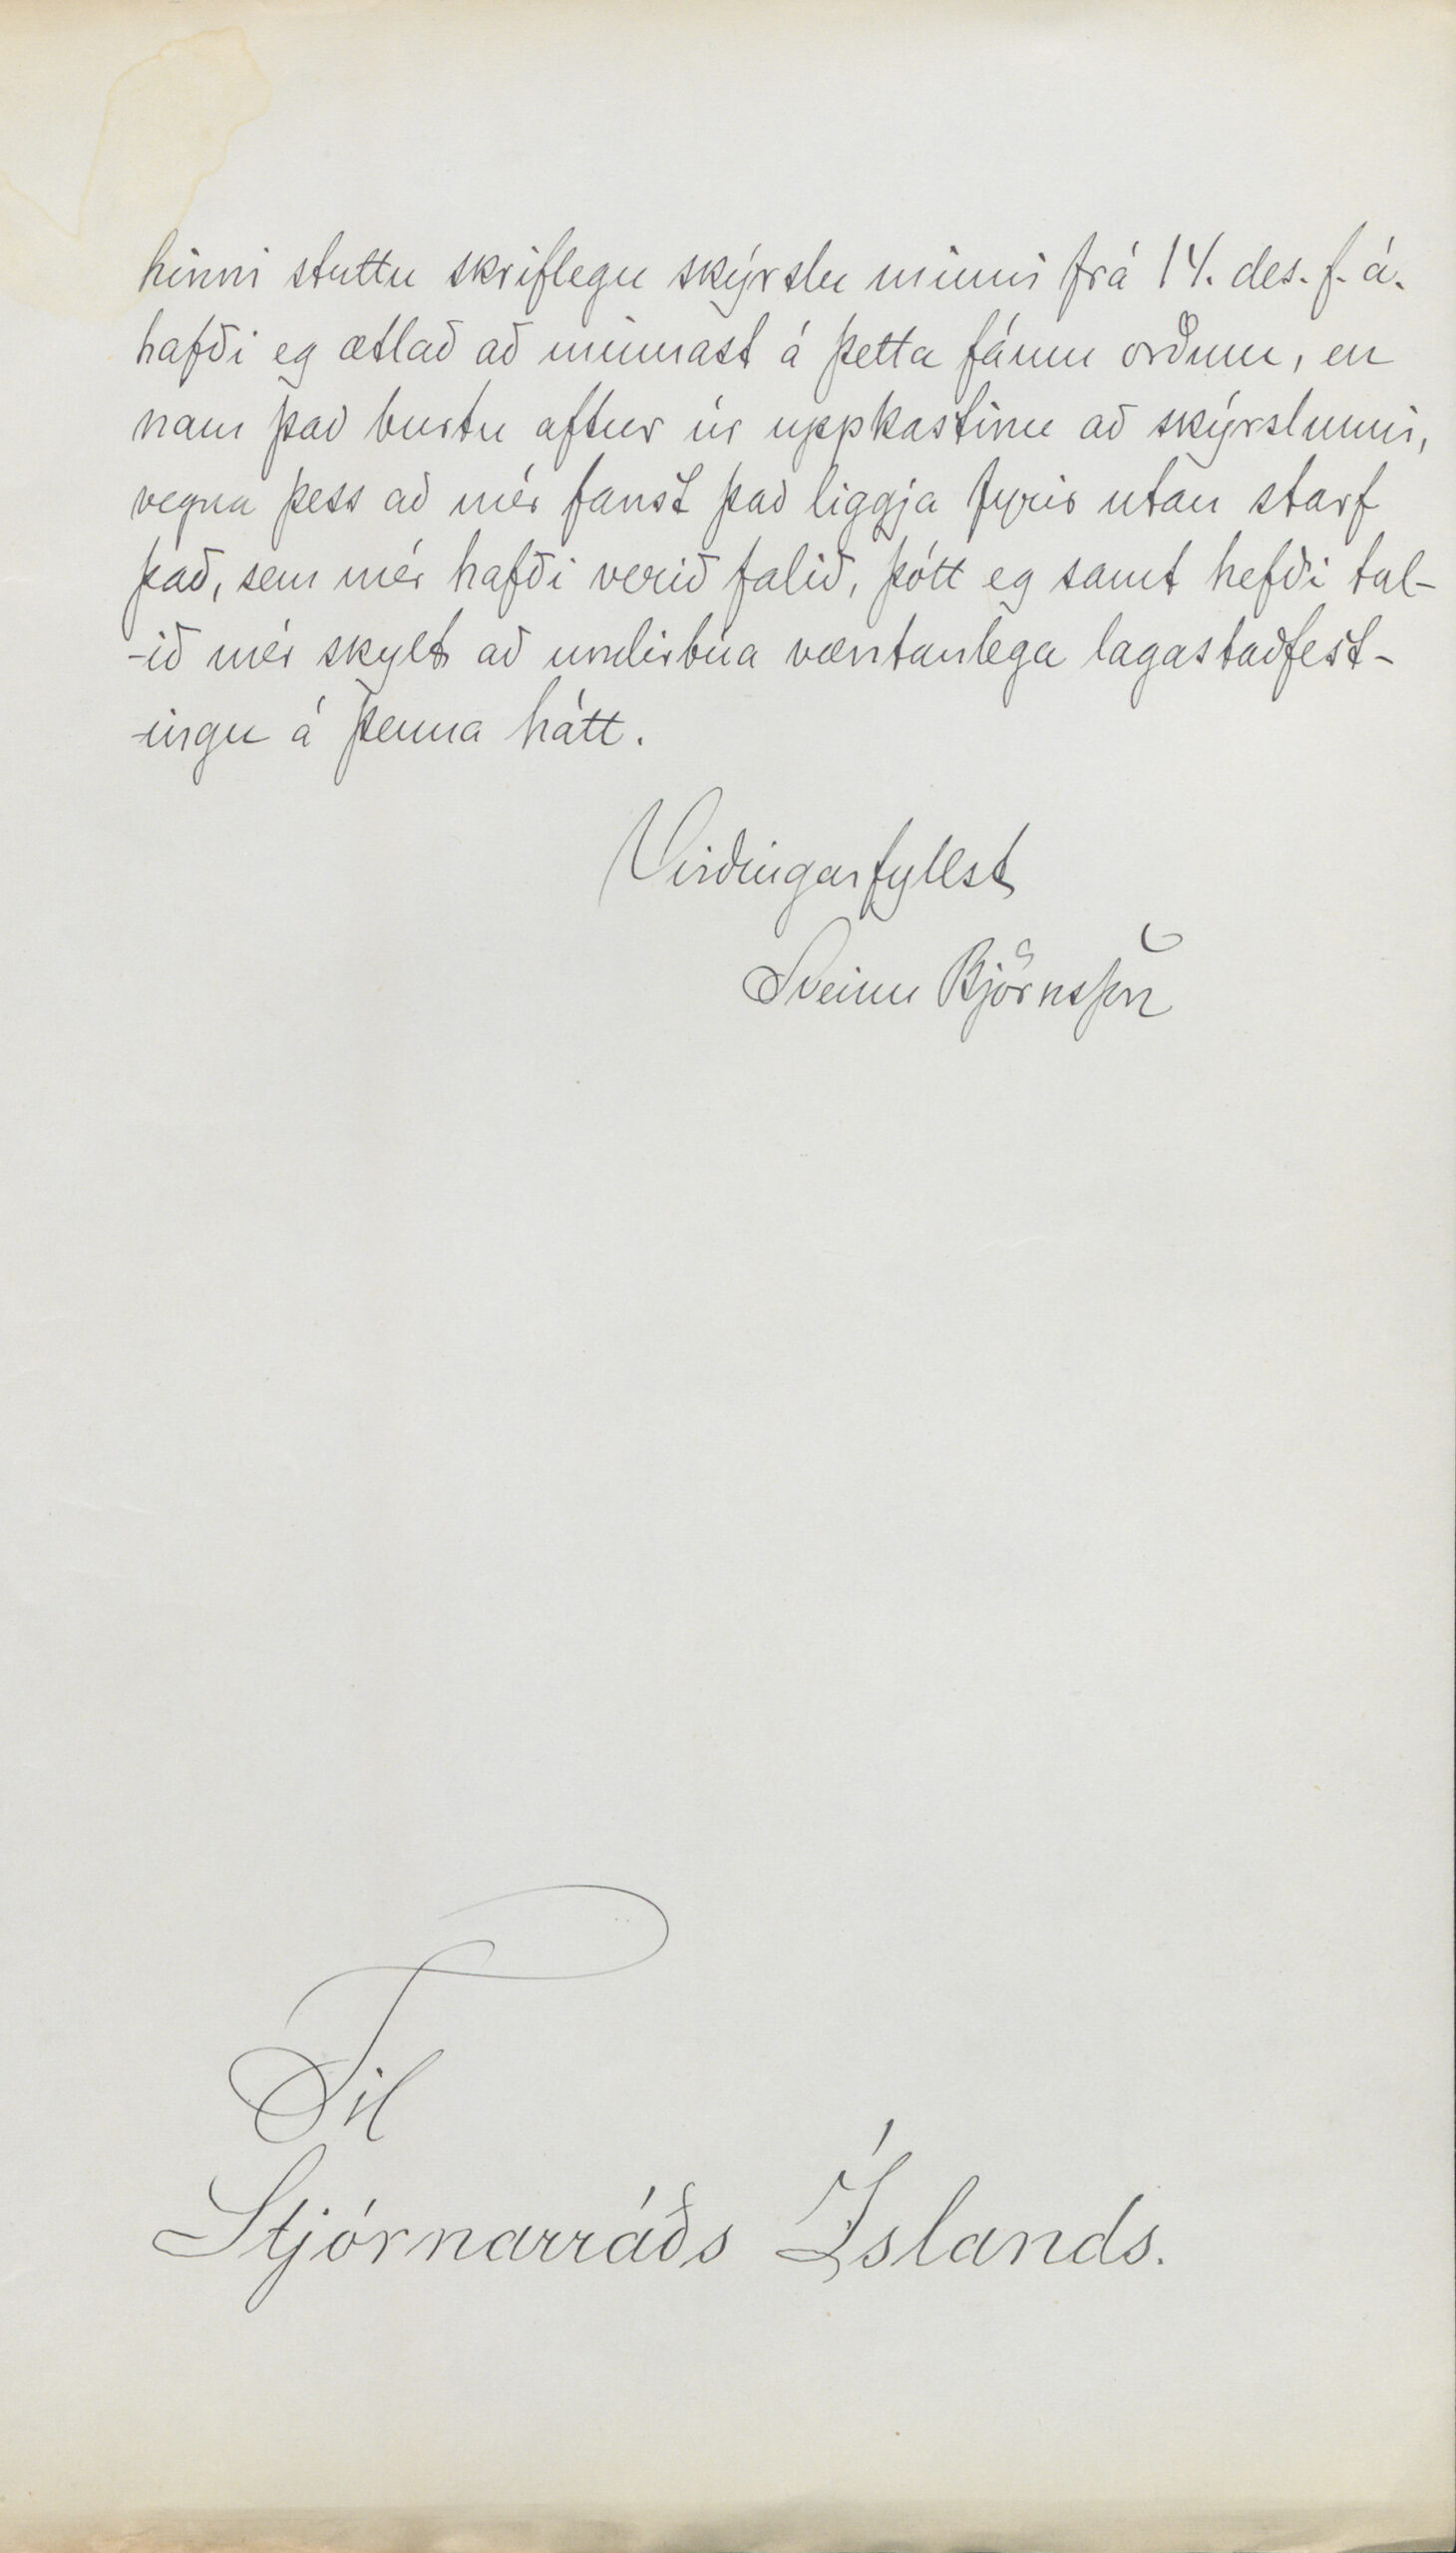 hinni stuttu skriflegu skýrslu minni frá 14. des. f. á.
hafði eg ætlað að minnast á þetta fáum orðum, en
nam það burtu aftur úr uppkastinu að skýrslunni,
vegna þess að mér fanst það liggja fyrir utan starf
það, sem mér hafði verið falið, þótt eg samt hefði tal-
-ið mér skylt að undirbúa væntanlega lagastaðfest-
-ingu á þenna hátt.
Virðingarfyllst
Sveinn Björnsson
Til
Stjórnarráðs Íslands.